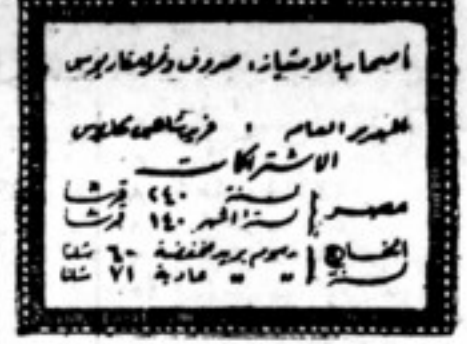 أصحاب الامتياز: صروف ونمر ومقاريوس
المدير العام :
الاشتراكات
مصر لسنة ٢٤٠ قرشا
لستة اشهر ١٤٠ قرشا
الخارج رسوم بريد مخفضة ٦٠ شلنا
لسنة » » عادية ٧١ شلنا